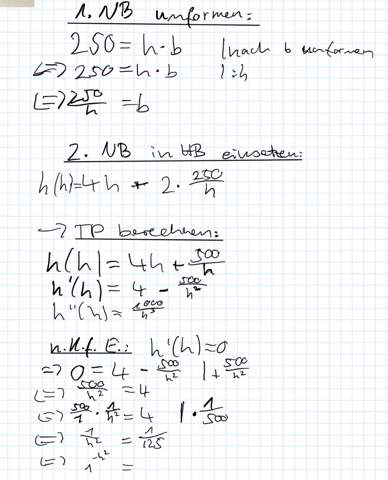 1. NB umformen:
250 = h · b | nach b umformen
<=> 250 = h · b | : h
<=> 250/h = b
2. NB in HB einsetzen:
h(h) = 4h + 2 · 250/h
→ TP berechnen:
h(h) = 4h + 500/h
h'(h) = 4 - 500/h²
h''(h) = 1000/h³
n.K.f.E.: h'(h) = 0
=> 0 = 4 - 500/h² | + 500/h²
<=> 500/h² = 4
<=> 500/1 · 1/h² = 4 | · 1/500
<=> 1/h² = 1/125
<=> 1^-h² =